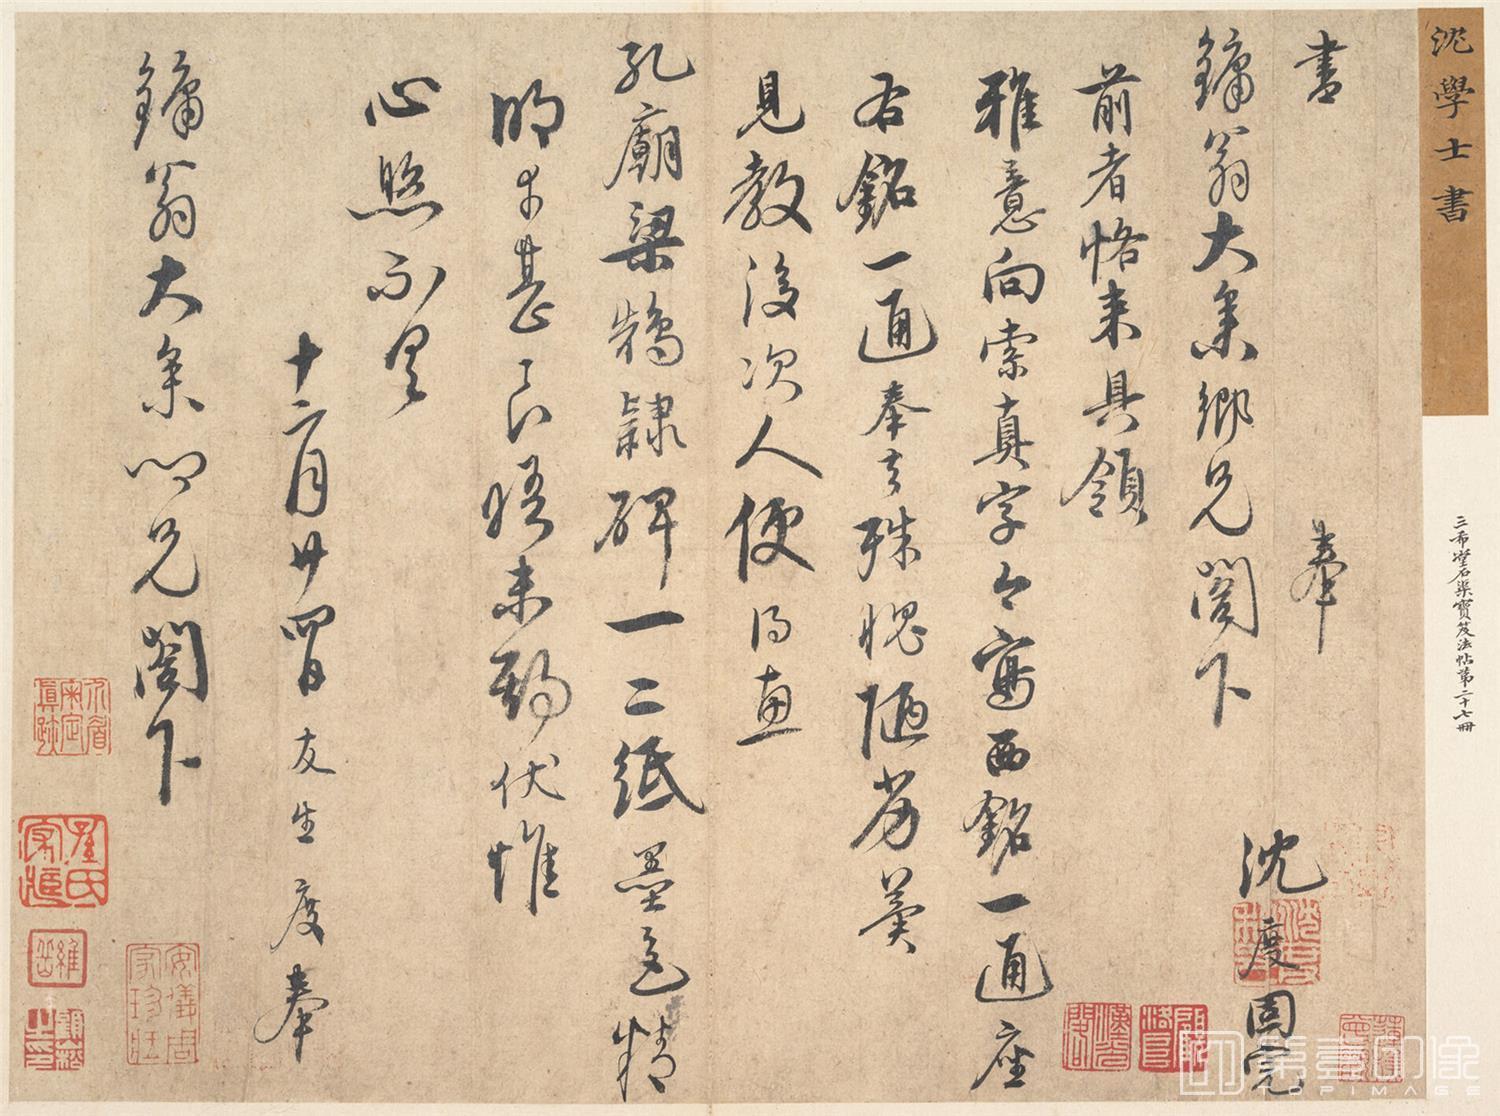 沈學士書
三希堂石渠寶笈法帖第二十七冊
書 奉 沈度固完
鏞翁大參鄉兄閣下
前者恪來具領
雅意向索真字今寫西銘一通座
右銘一通奉去殊愧陋劣冀
見教後次人便得惠
孔廟梁鵠隸碑一二紙墨色精
明者甚良晤未期伏惟
心照不具
十二月廿四日友生度奉
鏞翁大參鄉兄閣下
安儀周家珍藏
TOPIMAGE